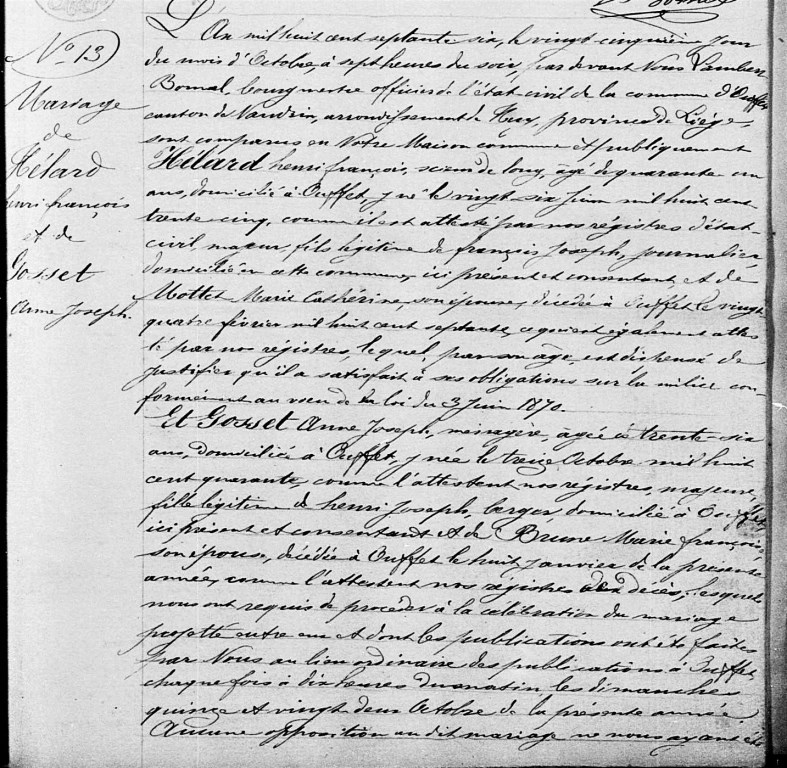 N° 13
Mariage
de
Hélard
henri françois
et de
Gosset
Anne Joseph.
L'An mil huit cent septante six, le vingt cinquième jour
du mois d'Octobre, à sept heures du soir, par devant Nous Lambert
Bomal, bourgmestre officier de l'état civil de la commune d'Ouffet
canton de Nandrin, arrondissement de Huy, province de Liége
sont comparus en Notre Maison commune et publiquement
Hélard henri françois, scieur de long, âgé de quarante un
ans, domicilié à Ouffet, y né le vingt six Juin mil huit cent
trente cinq, comme il est attesté par nos régistres d'état-
civil, majeur, fils légitime de françois Joseph, journalier,
domicilié en cette commune, ici présent et consentant, et de
Mottet Marie Cathérine, son épouse, décédée à Ouffet le vingt
quatre février mil huit cent septante, ce qui est également attes
té par nos régistres, lequel, par son âge, est dispensé de
justifier qu'il a satisfait à ses obligations sur la milice con-
formément au vœu de la loi du 3 Juin 1870.
Et Gosset Anne Joseph, ménagère, âgée de trente-six
ans, domiciliée à Ouffet, y née le treize Octobre mil huit
cent quarante, comme l'attestent nos régistre, majeure,
fille légitime de henri Joseph, berger domicilié à Ouffet,
ici présent et consentant et de Brune Marie françoise
son épouse, décédée à Ouffet le huit Janvier de la présente
année, comme l'attestent nos régistres des décès, lesquels
nous ont requis de procéder à la célébration du mariage
projetté entre eux et dont les publications ont été faites
par Nous au lieu ordinaire des publications à Ouffet,
chaque fois à dix heures du matin, les dimanches
quinze et vingt deux Octobre de la présente année
Aucune opposition au dit mariage ne nous ayant été